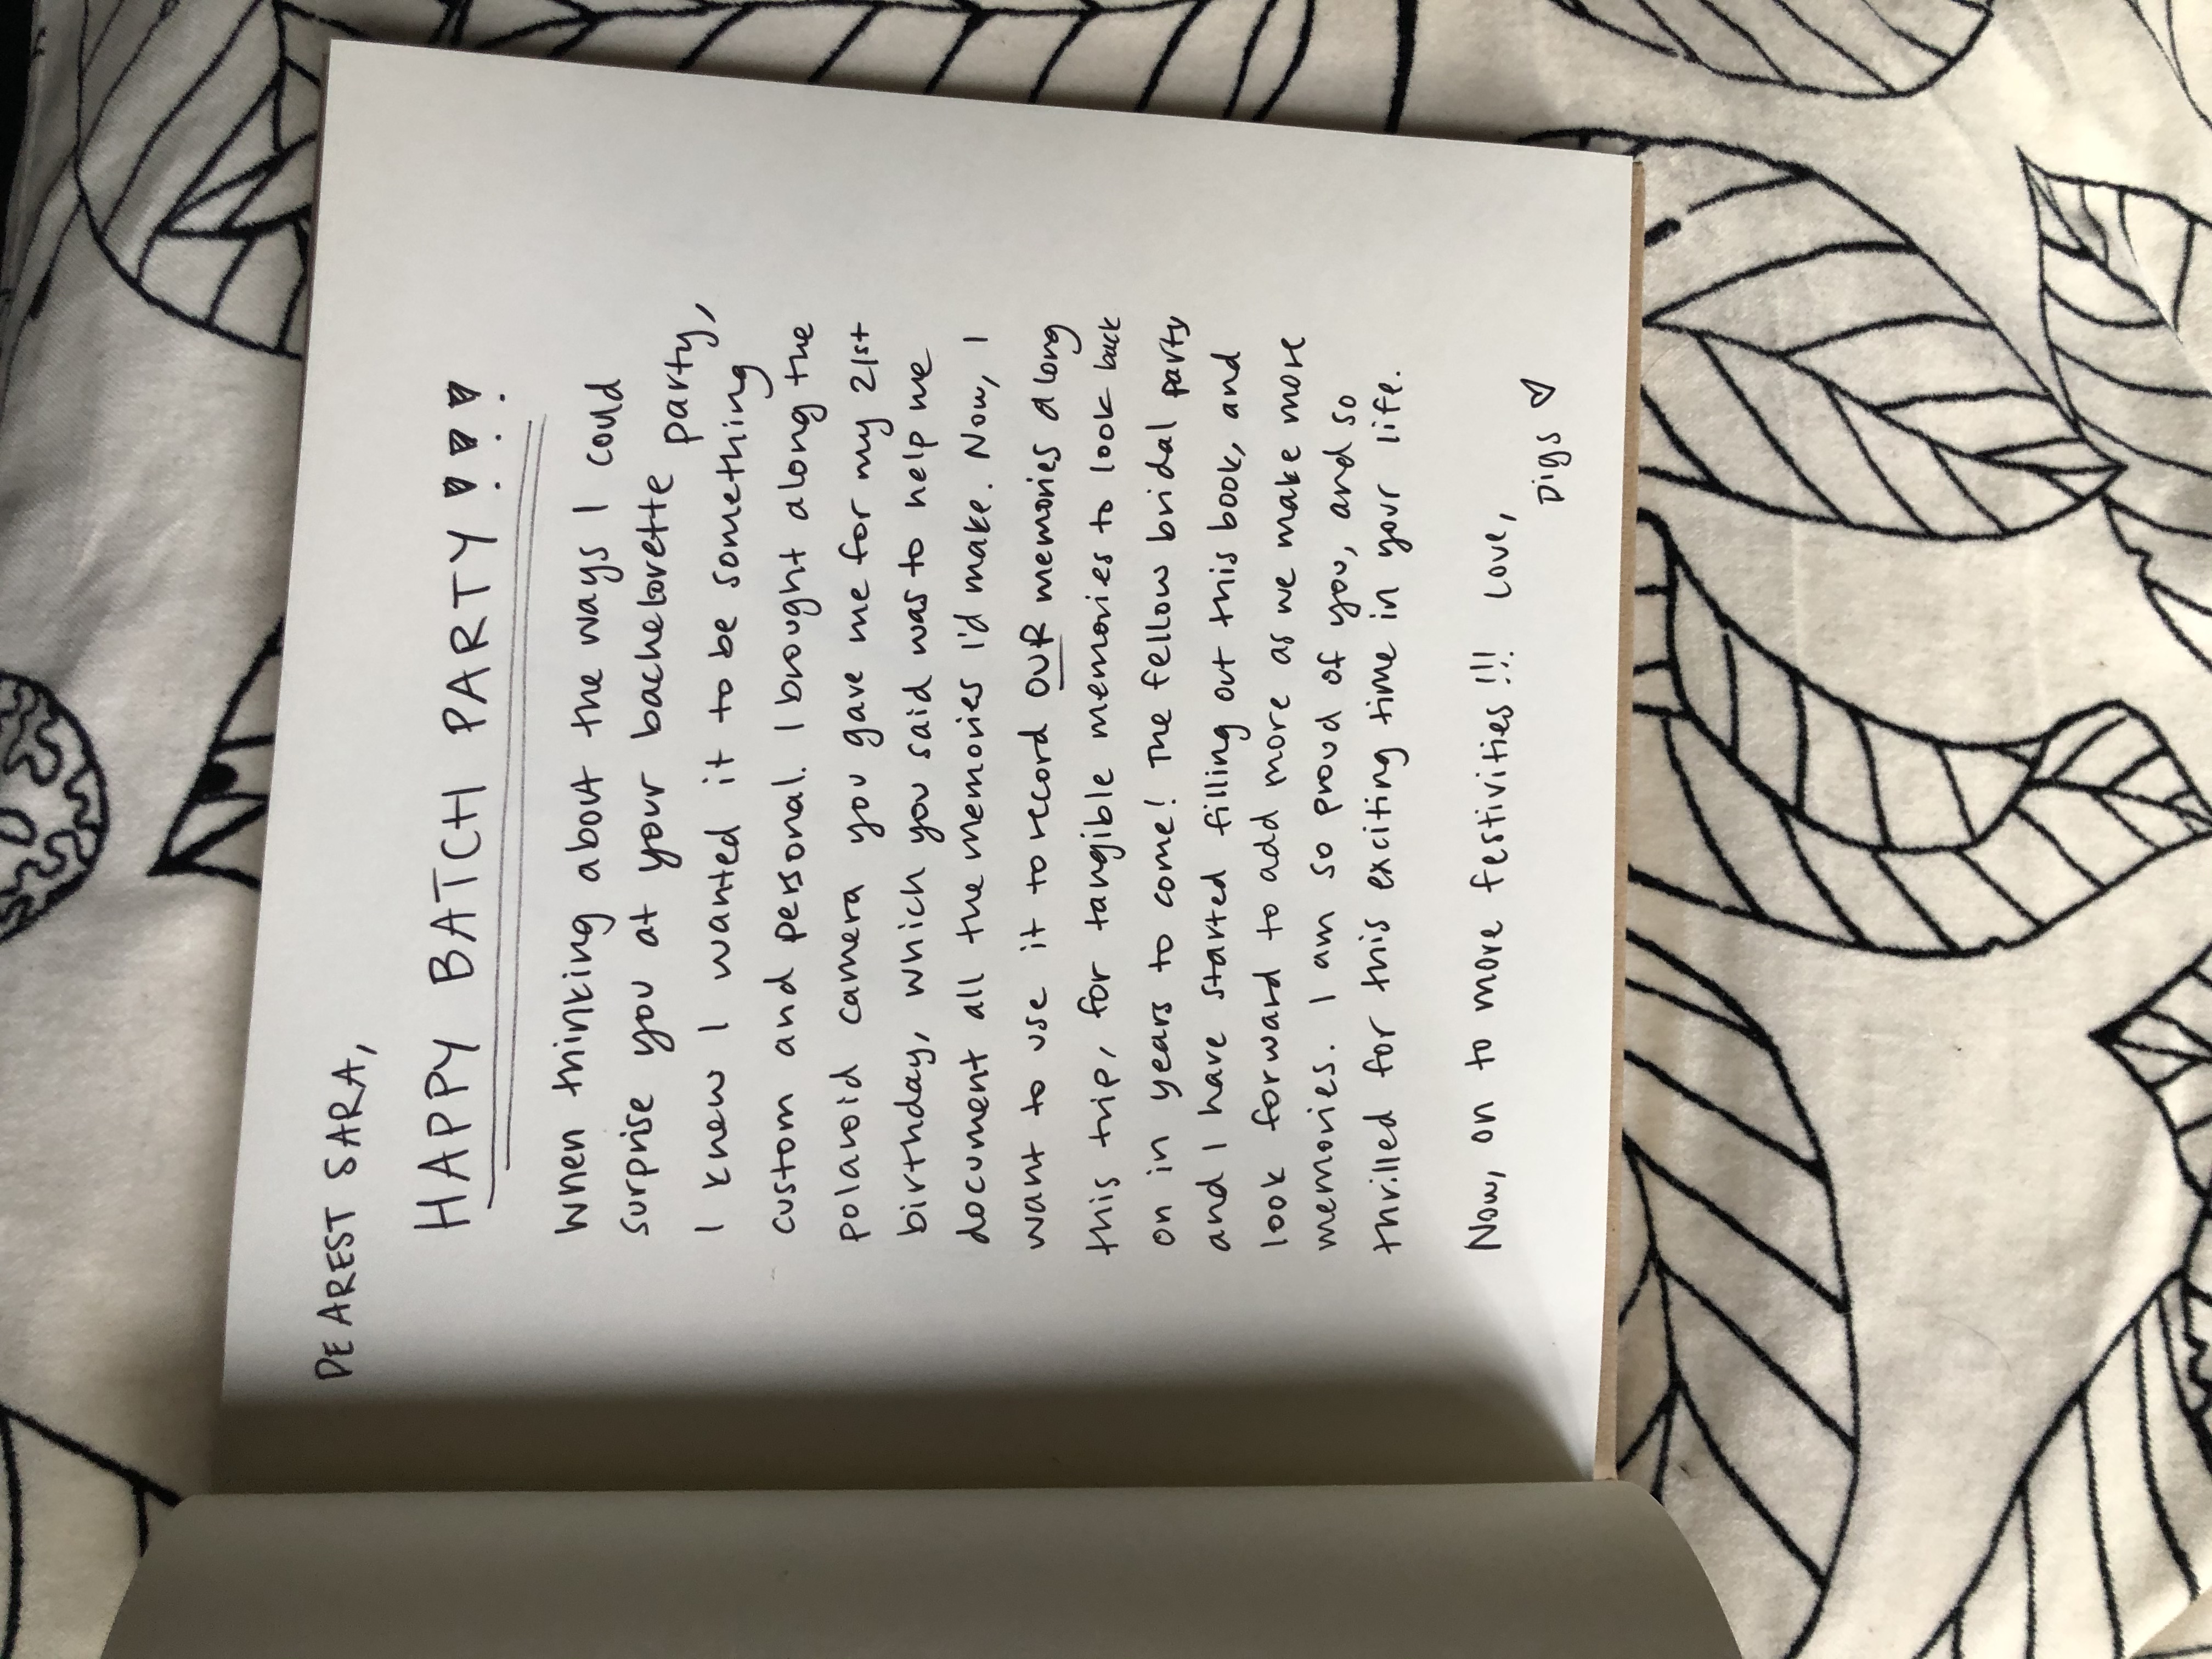 DEAREST SARA,
HAPPY BATCH PARTY!!!
When thinking about the ways I could
surprise you at your bachelorette party,
I knew I wanted it to be something
custom and personal. I brought along the
polaroid camera you gave me for my 21st
birthday, which you said was to help me
document all the memories I'd make. Now, I
want to use it to record OUR memories along
this trip, for tangible memories to look back
on in years to come! The fellow bridal party
and I have started filling out this book, and
look forward to add more as we make more
memories. I am so proud of you, and so
thrilled for this exciting time in your life.
Now, on to more festivities!!! Love,
Digs ♡